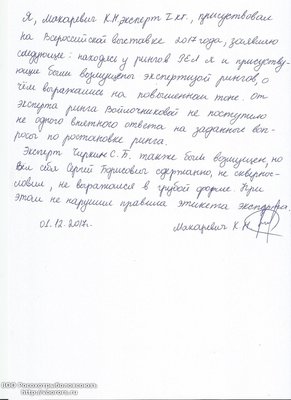 Я, Макаревич К.Н эксперт I кт., присутствовал
на Всероссийской выставке 2017 года, заявляю
следующее: находясь у рингов РЕЛ я и присутству-
ющие были возмущены экспертизой рингов, о
чём выражались на повышенном тоне. От
эксперта ринга Войлочниковой не поступило
не одного внятного ответа на заданные воп-
росы по расстановке ринга.
Эксперт Чиркин С.Б. также был возмущен, но
вёл себя Сергей Борисович сдержанно, не скверно-
словил, не выражался в грубой форме. При
этом не нарушил правила этикета эксперта.
01.12.2017г. Макаревич К.Н
РОО Росохотрыболовсоюз
http://voorors.ru